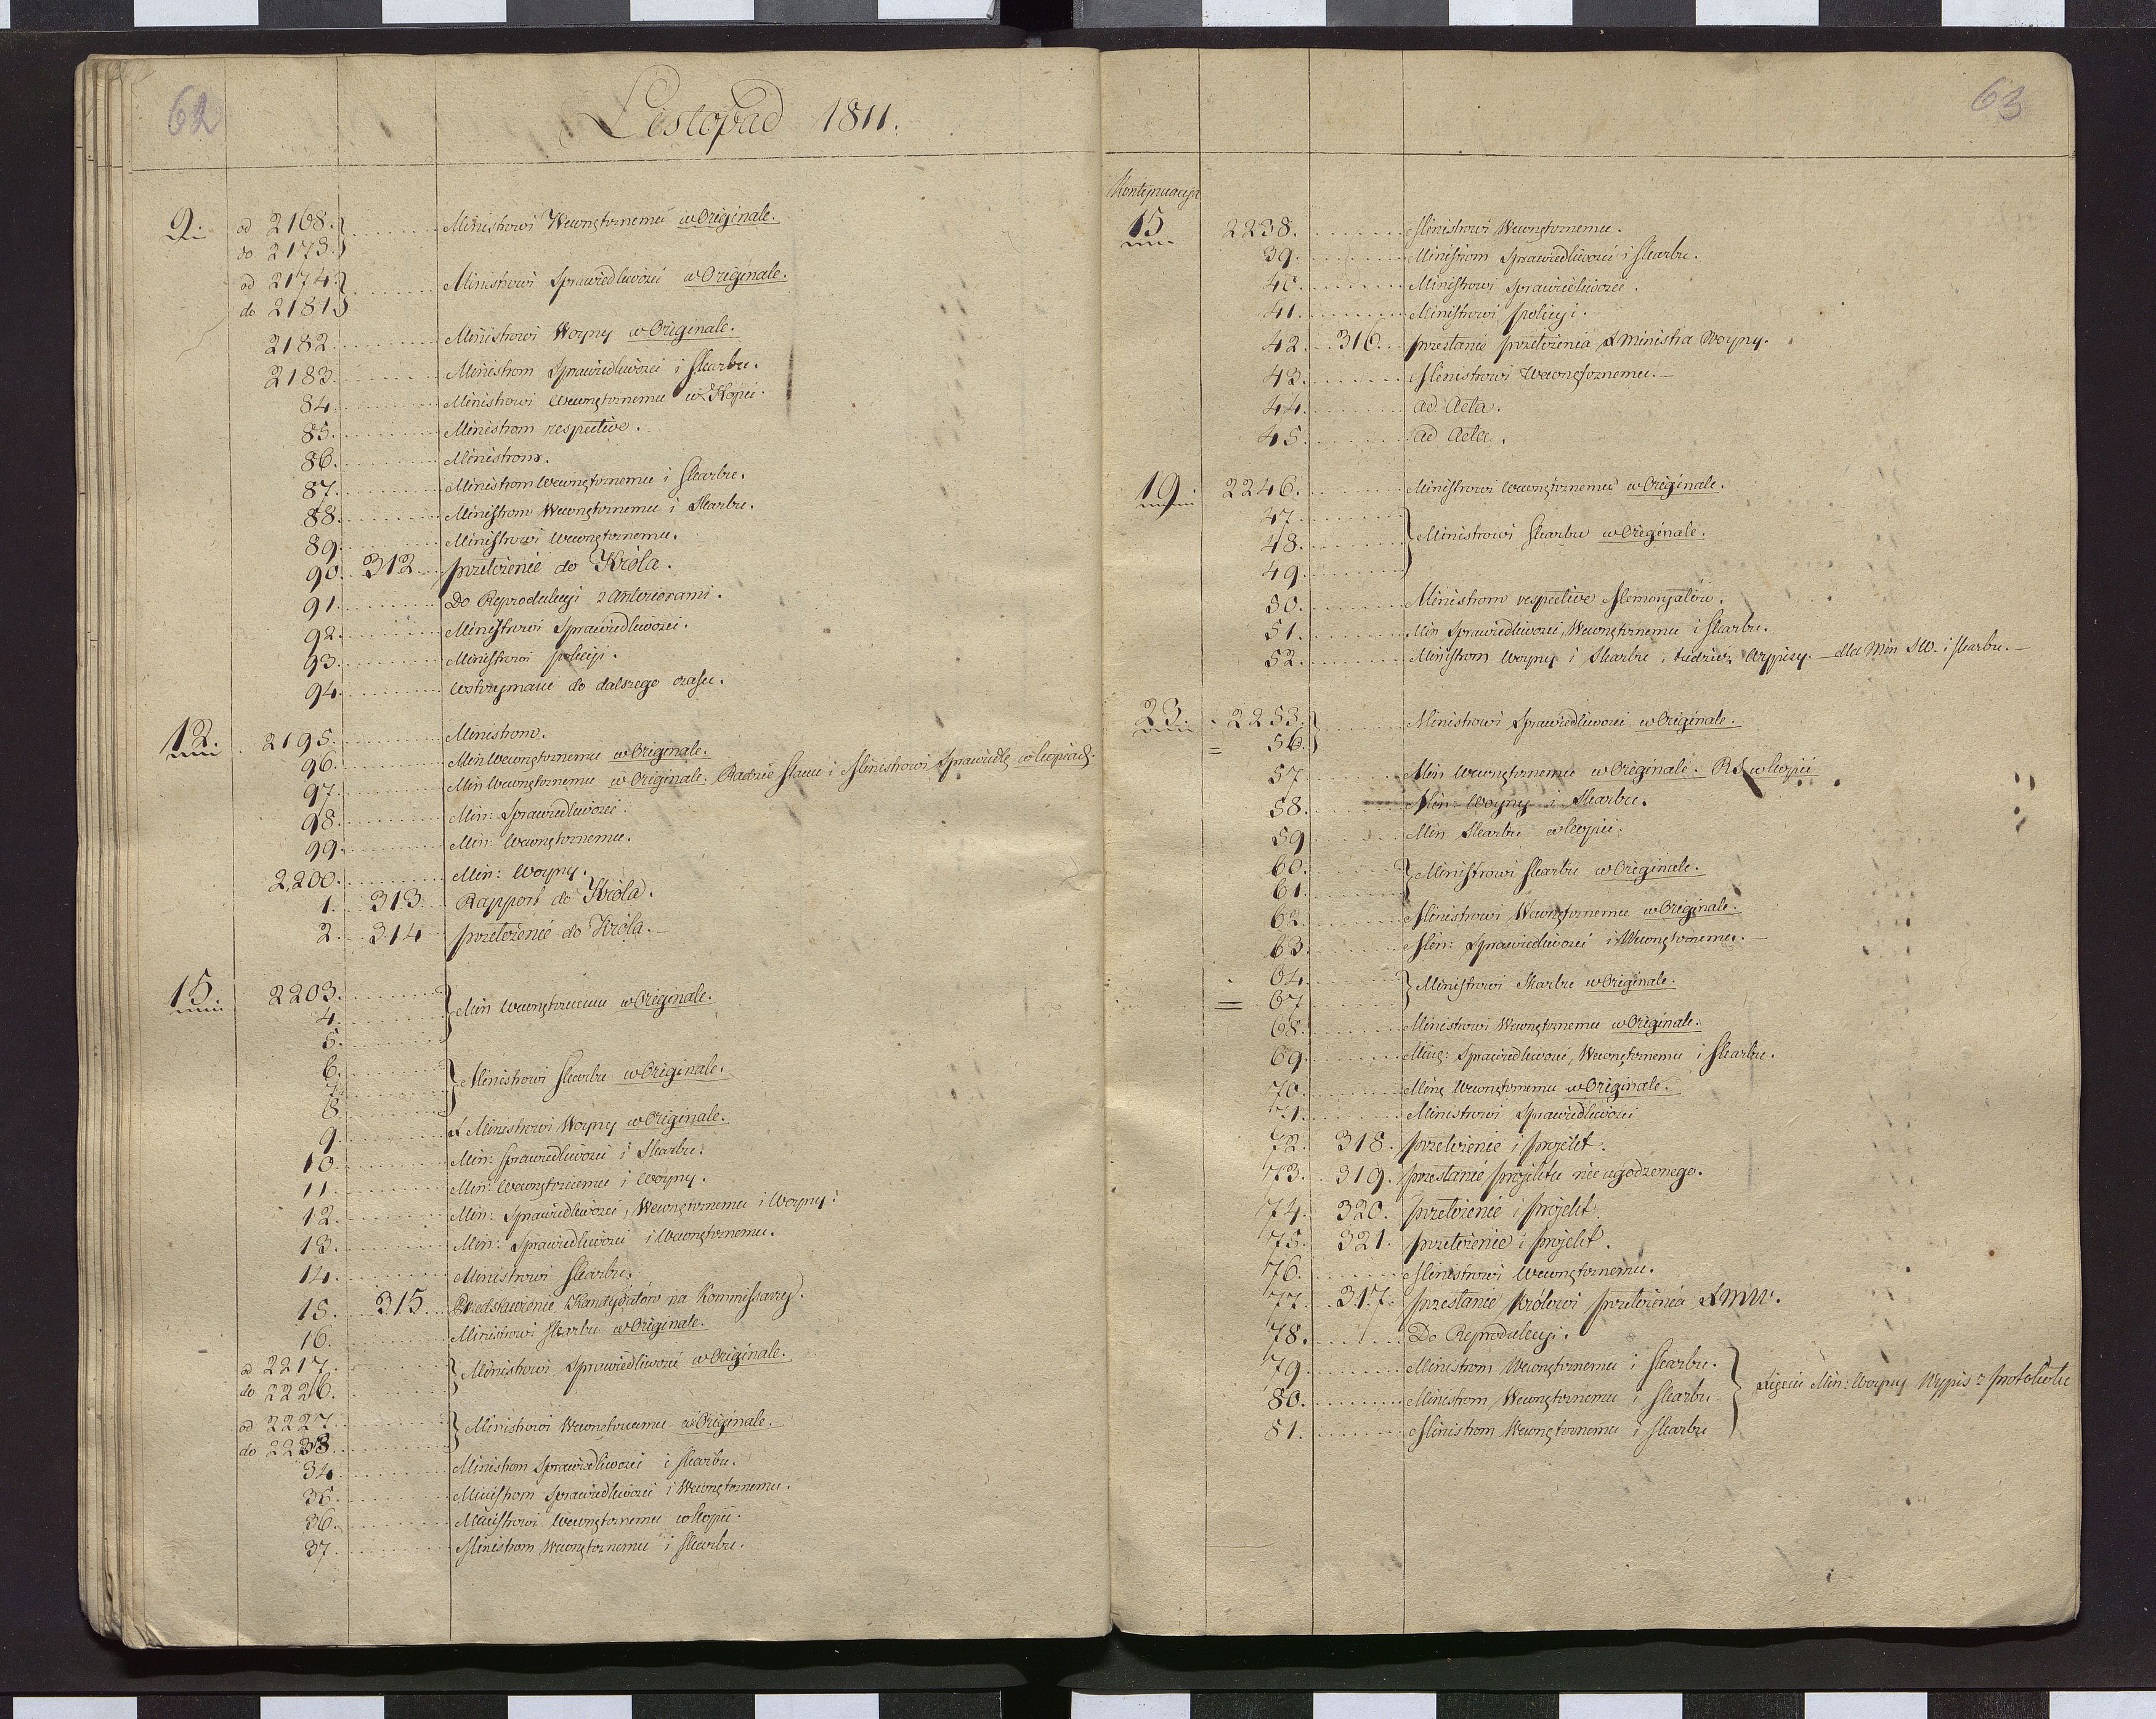 62
Listopad 1811.
9. od 2168. Ministrowi Wewnętrznemu w Originale.
do 2173.
od 2174. Ministrowi Sprawiedliwości w Originale.
do 2181
2182. Ministrowi Woyny w Originale.
2183. Ministrom Sprawiedliwości i Skarbu.
84. Ministrowi Wewnętrznemu w Kopii.
85. Ministrom respective.
86. Ministrom.
87. Ministrom Wewnętrznemu i Skarbu.
88. Ministrom Wewnętrznemu i Skarbu.
89. Ministrowi Wewnętrznemu.
90. 312 przełożenie do Króla.
91. Do Reprodukcyi z anteriorami.
92. Ministrowi Sprawiedliwości.
93. Ministrowi policyi.
94. Wstrzymane do dalszego czasu.
12. 2195. Ministrom.
96. Min Wewnętrznemu w Originale.
97. Min Wewnętrznemu w Originale. Radzie Stanu i Ministrowi Sprawiedlę w kopiach.
98. Min: Sprawiedliwości.
99. Min: Wewnętrznemu.
2,200. Min: Woyny.
1. 313 Rapport do Króla.
2. 314 przełożenie do Króla.
15. 2203. Min Wewnętrznemu w Originale.
4.
5.
6. Ministrowi Skarbu w Originale.
7
8
9 Ministrowi Woyny w Originale.
10. Min: Sprawiedliwości i Skarbu.
11. Min: Wewnętrznemu i Woyny.
12. Min: Sprawiedliwości, Wewnętrznemu i Woyny.
13. Min: Sprawiedliwości i Wewnętrznemu.
14. Ministrowi Skarbu.
15. 315. Przedstawienie Kandydatów na Kommissarzy.
16. Ministrowi Skarbu w Originale.
od 2217. Ministrowi Sprawiedliwości w Originale.
do 2226.
od 2227. Ministrowi Wewnętrznemu w Originale.
do 2233
34. Ministrom Sprawiedliwości i Skarbu.
35. Ministrom Sprawiedliwości i Wewnętrznemu.
36. Ministrowi Wewnętrznemu w kopii.
37. Ministrom Wewnętrznemu i Skarbu.
63
Kontynuacya
15 2238. Ministrowi Wewnętrznemu.
39. Ministrom Sprawiedliwości i Skarbu.
40. Ministrowi Sprawiedliwości.
41. Ministrowi policyi.
42. 316. przesłanie przełożenia Ministra Woyny.
43. Ministrowi Wewnętrznemu.
44. ad Acta.
45. ad Acta.
19. 2246. Ministrowi Wewnętrznemu w Originale.
47. Ministrowi Skarbu w Originale.
48.
49
50. Ministrom respective Memoryałów.
51. Min Sprawiedliwości, Wewnętrznemu i Skarbu.
52. Ministrom Woyny i Skarbu, tudzież Wypisy dla Min SW. i Skarbu.
23. 2253. Ministrowi Sprawiedliwości w Originale.
= 56
57 Min Wewnętrznemu w Originale. RS w kopii
58. Min: Woyny i Skarbu.
59 Min Skarbu w kopii.
60. Ministrowi Skarbu w Originale.
61.
62. Ministrowi Wewnętrznemu w Originale.
63. Min: Sprawiedliwości i Wewnętrznemu.
64. Ministrowi Skarbu w Originale.
= 67
68. Ministrowi Wewnętrznemu w Originale.
69. Sprawiedliwości, Wewnętrznemu i Skarbu.
70. Wewnętrznemu w Originale.
71. Ministrowi Sprawiedliwości
72. 318. przełożenie i projekt.
73. 319. przesłanie projektu nieugodzonego.
74. 320. przełożenie i projekt.
75. 321. przełożenie i projekt.
76. Ministrowi Wewnętrznemu.
77. 317. przesłanie Królowi przełożenia
78. Do Reprodukcyi.
79 Ministrom Wewnętrznemu i Skarbu.
80. Ministrom Wewnętrznemu i Skarbu Min: Woyny Wypis z protokułu
81. Ministrom Wewnętrznemu i Skarbu